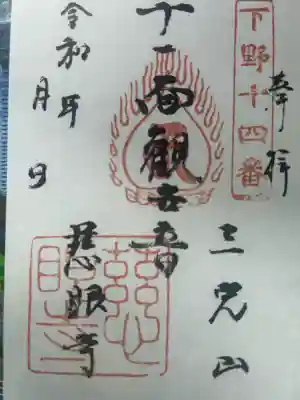 奉拝
下野十四番
三光山
十一面観世音
慈眼寺
令和 年
月 日